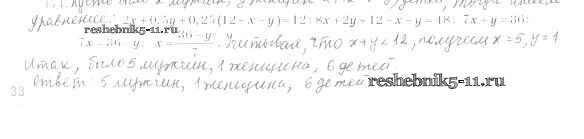 Пусть было x мужчин, y женщин
уравнение: 2x+0,5y+0,25(12-x-y)=12; 8x+2y+12-x-y=48; 7x+y=36;
reshebnik5-11.ru
7x=36-y; x=36-y/7. Учитывая, что x+y<12, получаем x=5, y=1
Итак, было 5 мужчин, 1 женщина, 6 детей
Ответ: 5 мужчин, 1 женщина, 6 детей
reshebnik5-11.ru
33